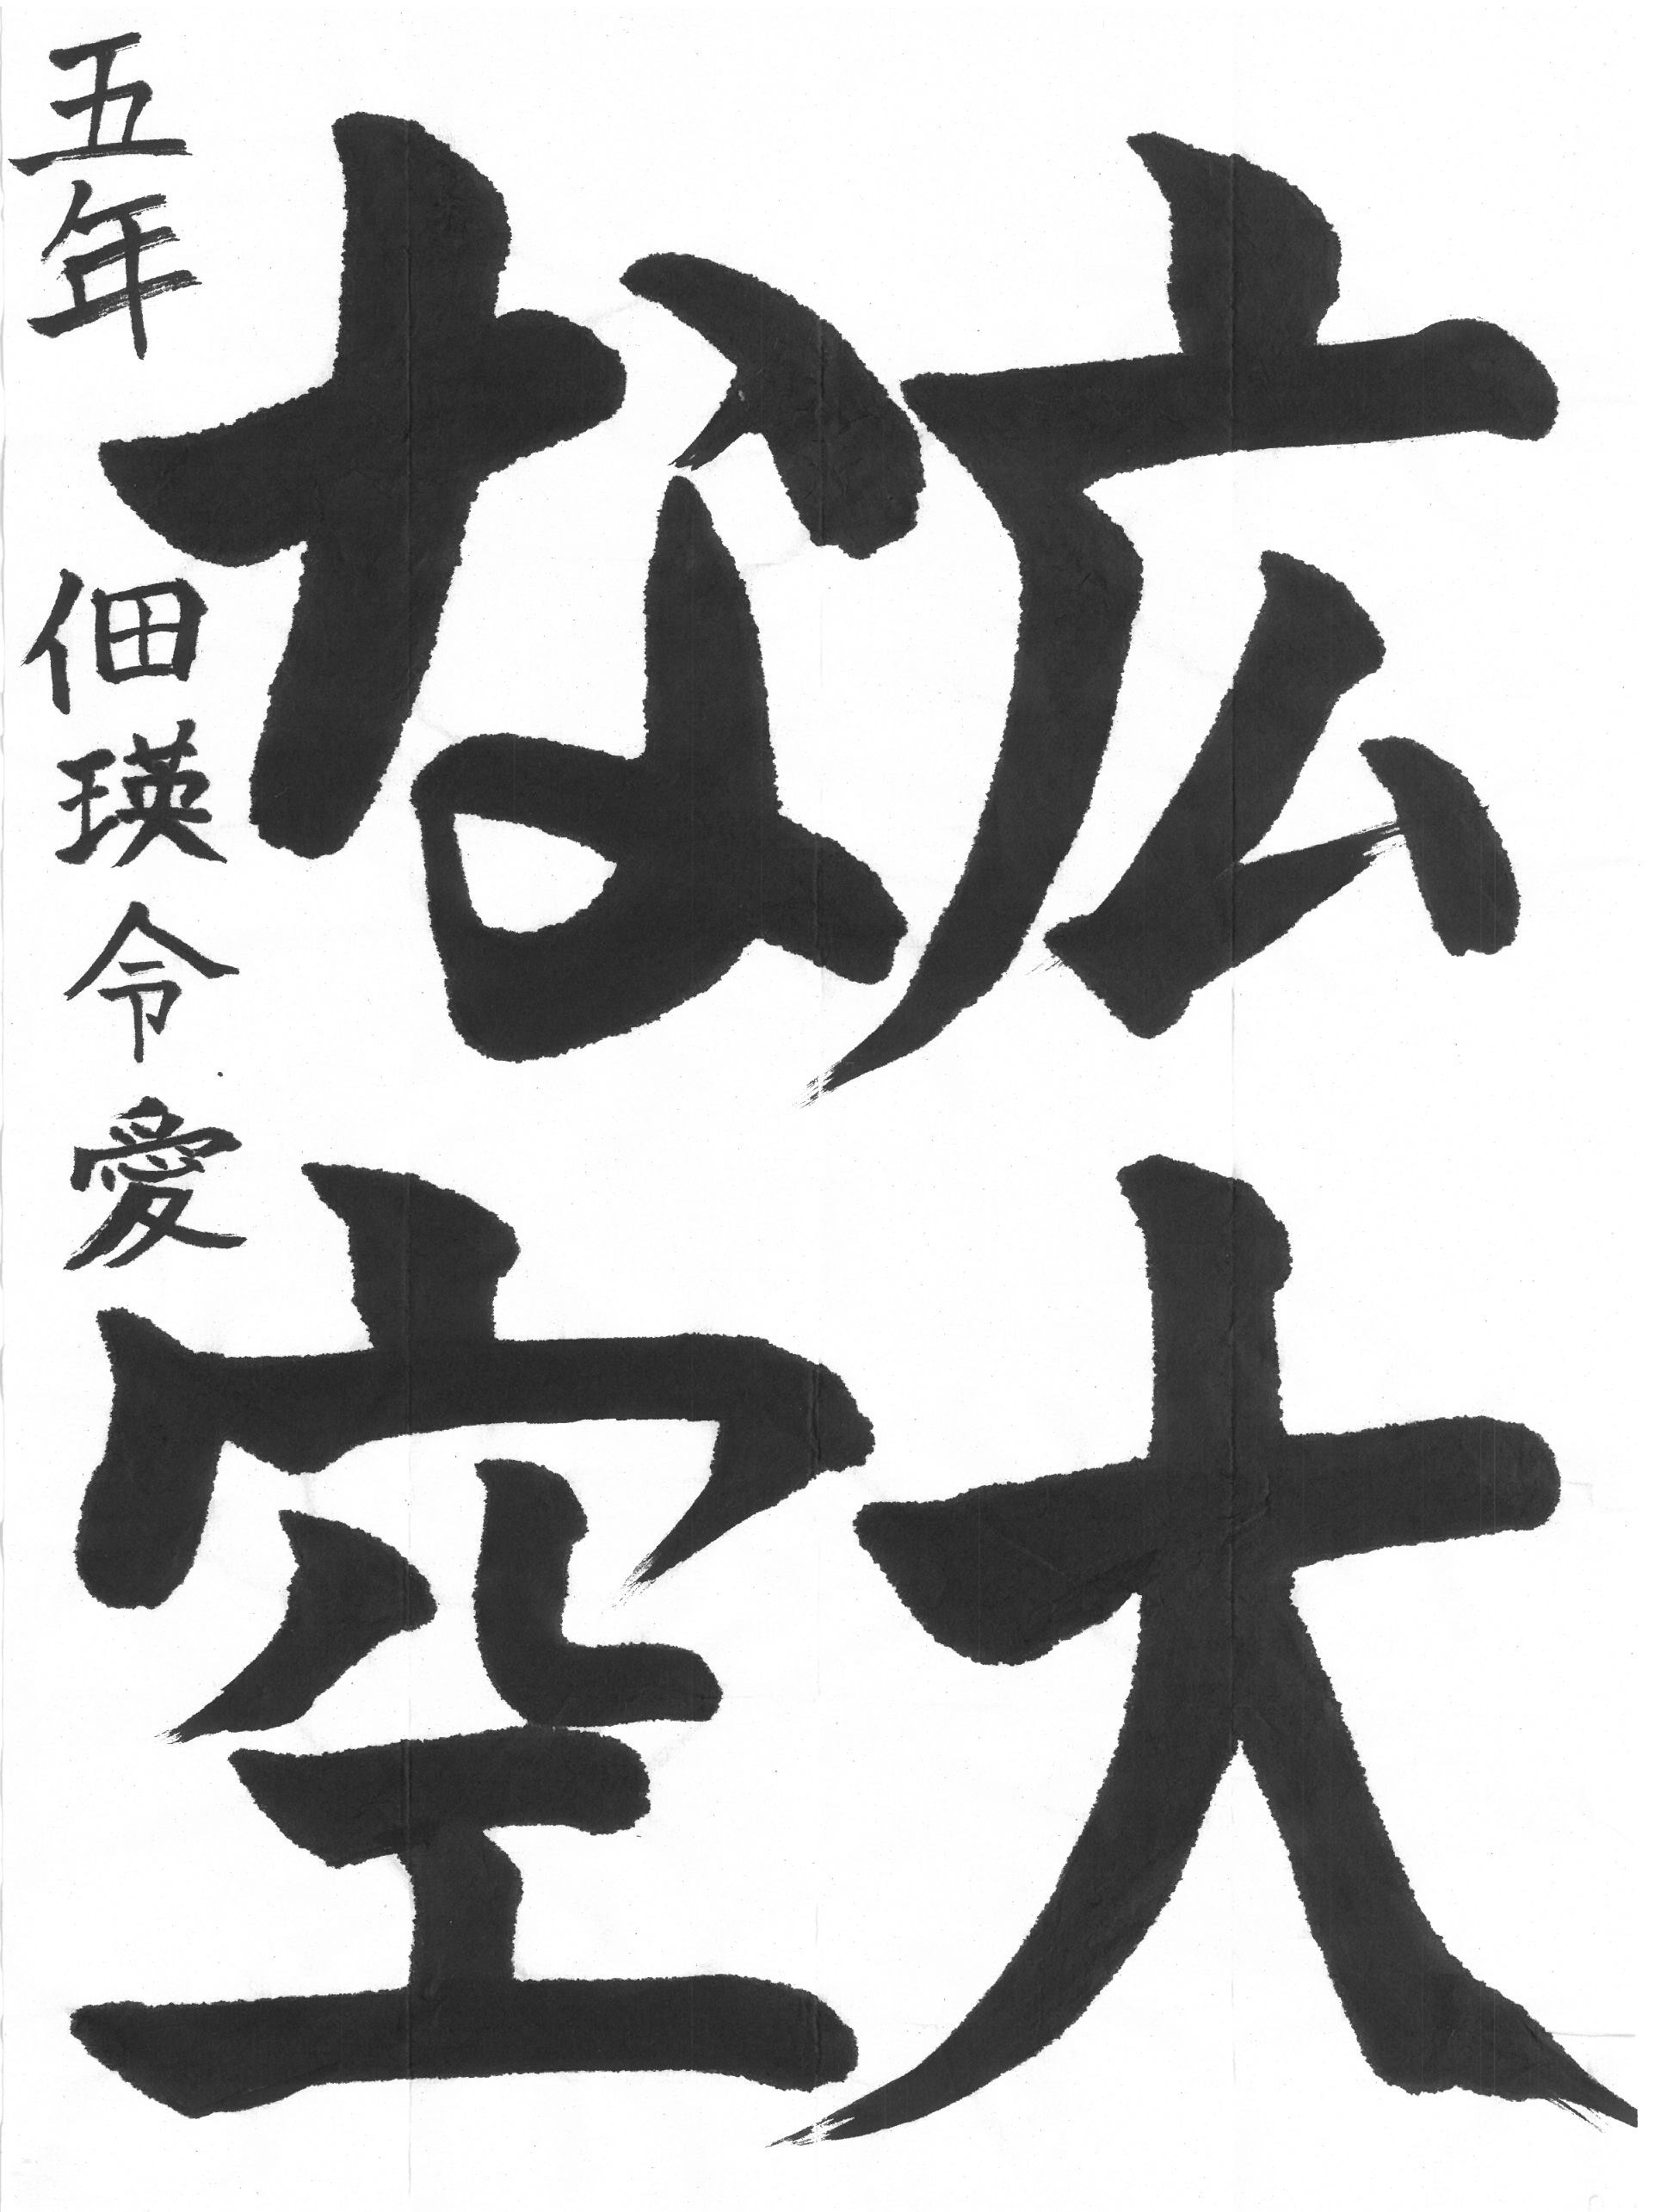 広大
な空
五年 佃瑛令愛